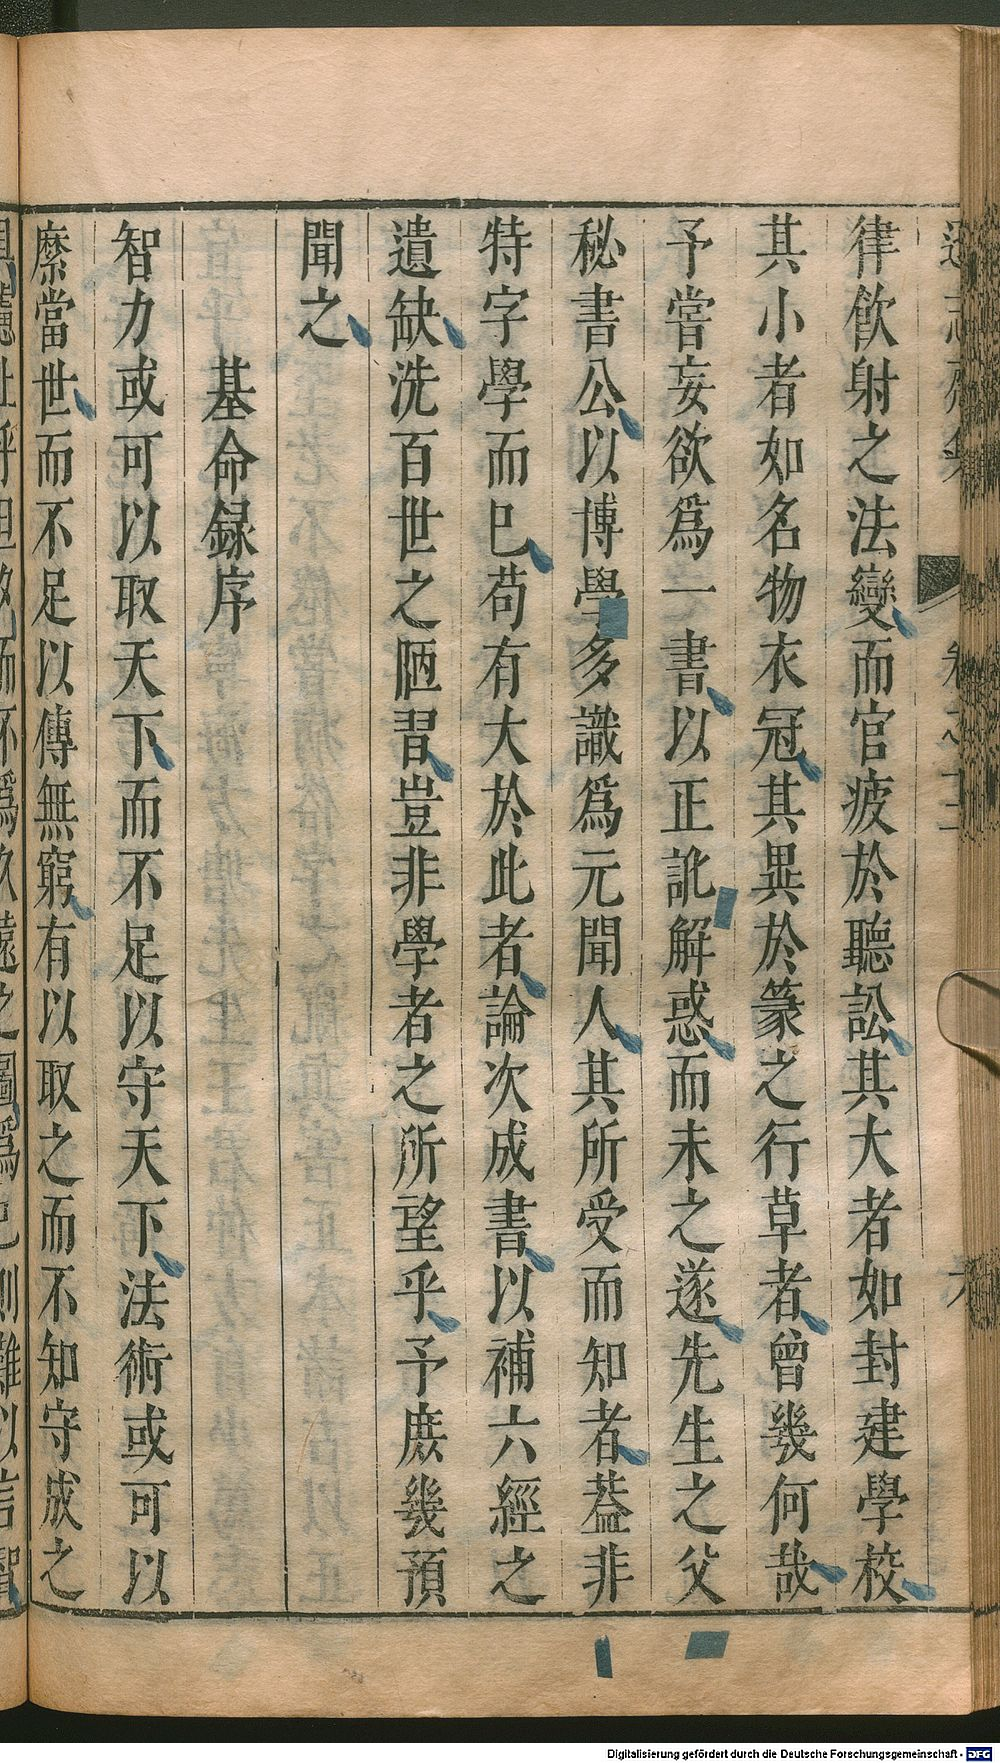 律飲射之法變而官疲於聽訟其大者如封建學校
其小者如名物衣冠其異於篆之行草者曾幾何哉
予嘗妄欲爲一書以正訛解惑而未之遂先生之父
秘書公以博學多識爲元聞人其所受而知者葢非
特字學而已苟有大於此者論次成書以補六經之
遺缺洗百世之陋習豈非學者之所望乎予庶幾預
聞之
基命録序
智力或可以取天下而不足以守天下法術或可以
縻當世而不足以傳無窮有以取之而不知守成之
Digitalisierung gefördert durch die Deutsche Forschungsgemeinschaft - DFG